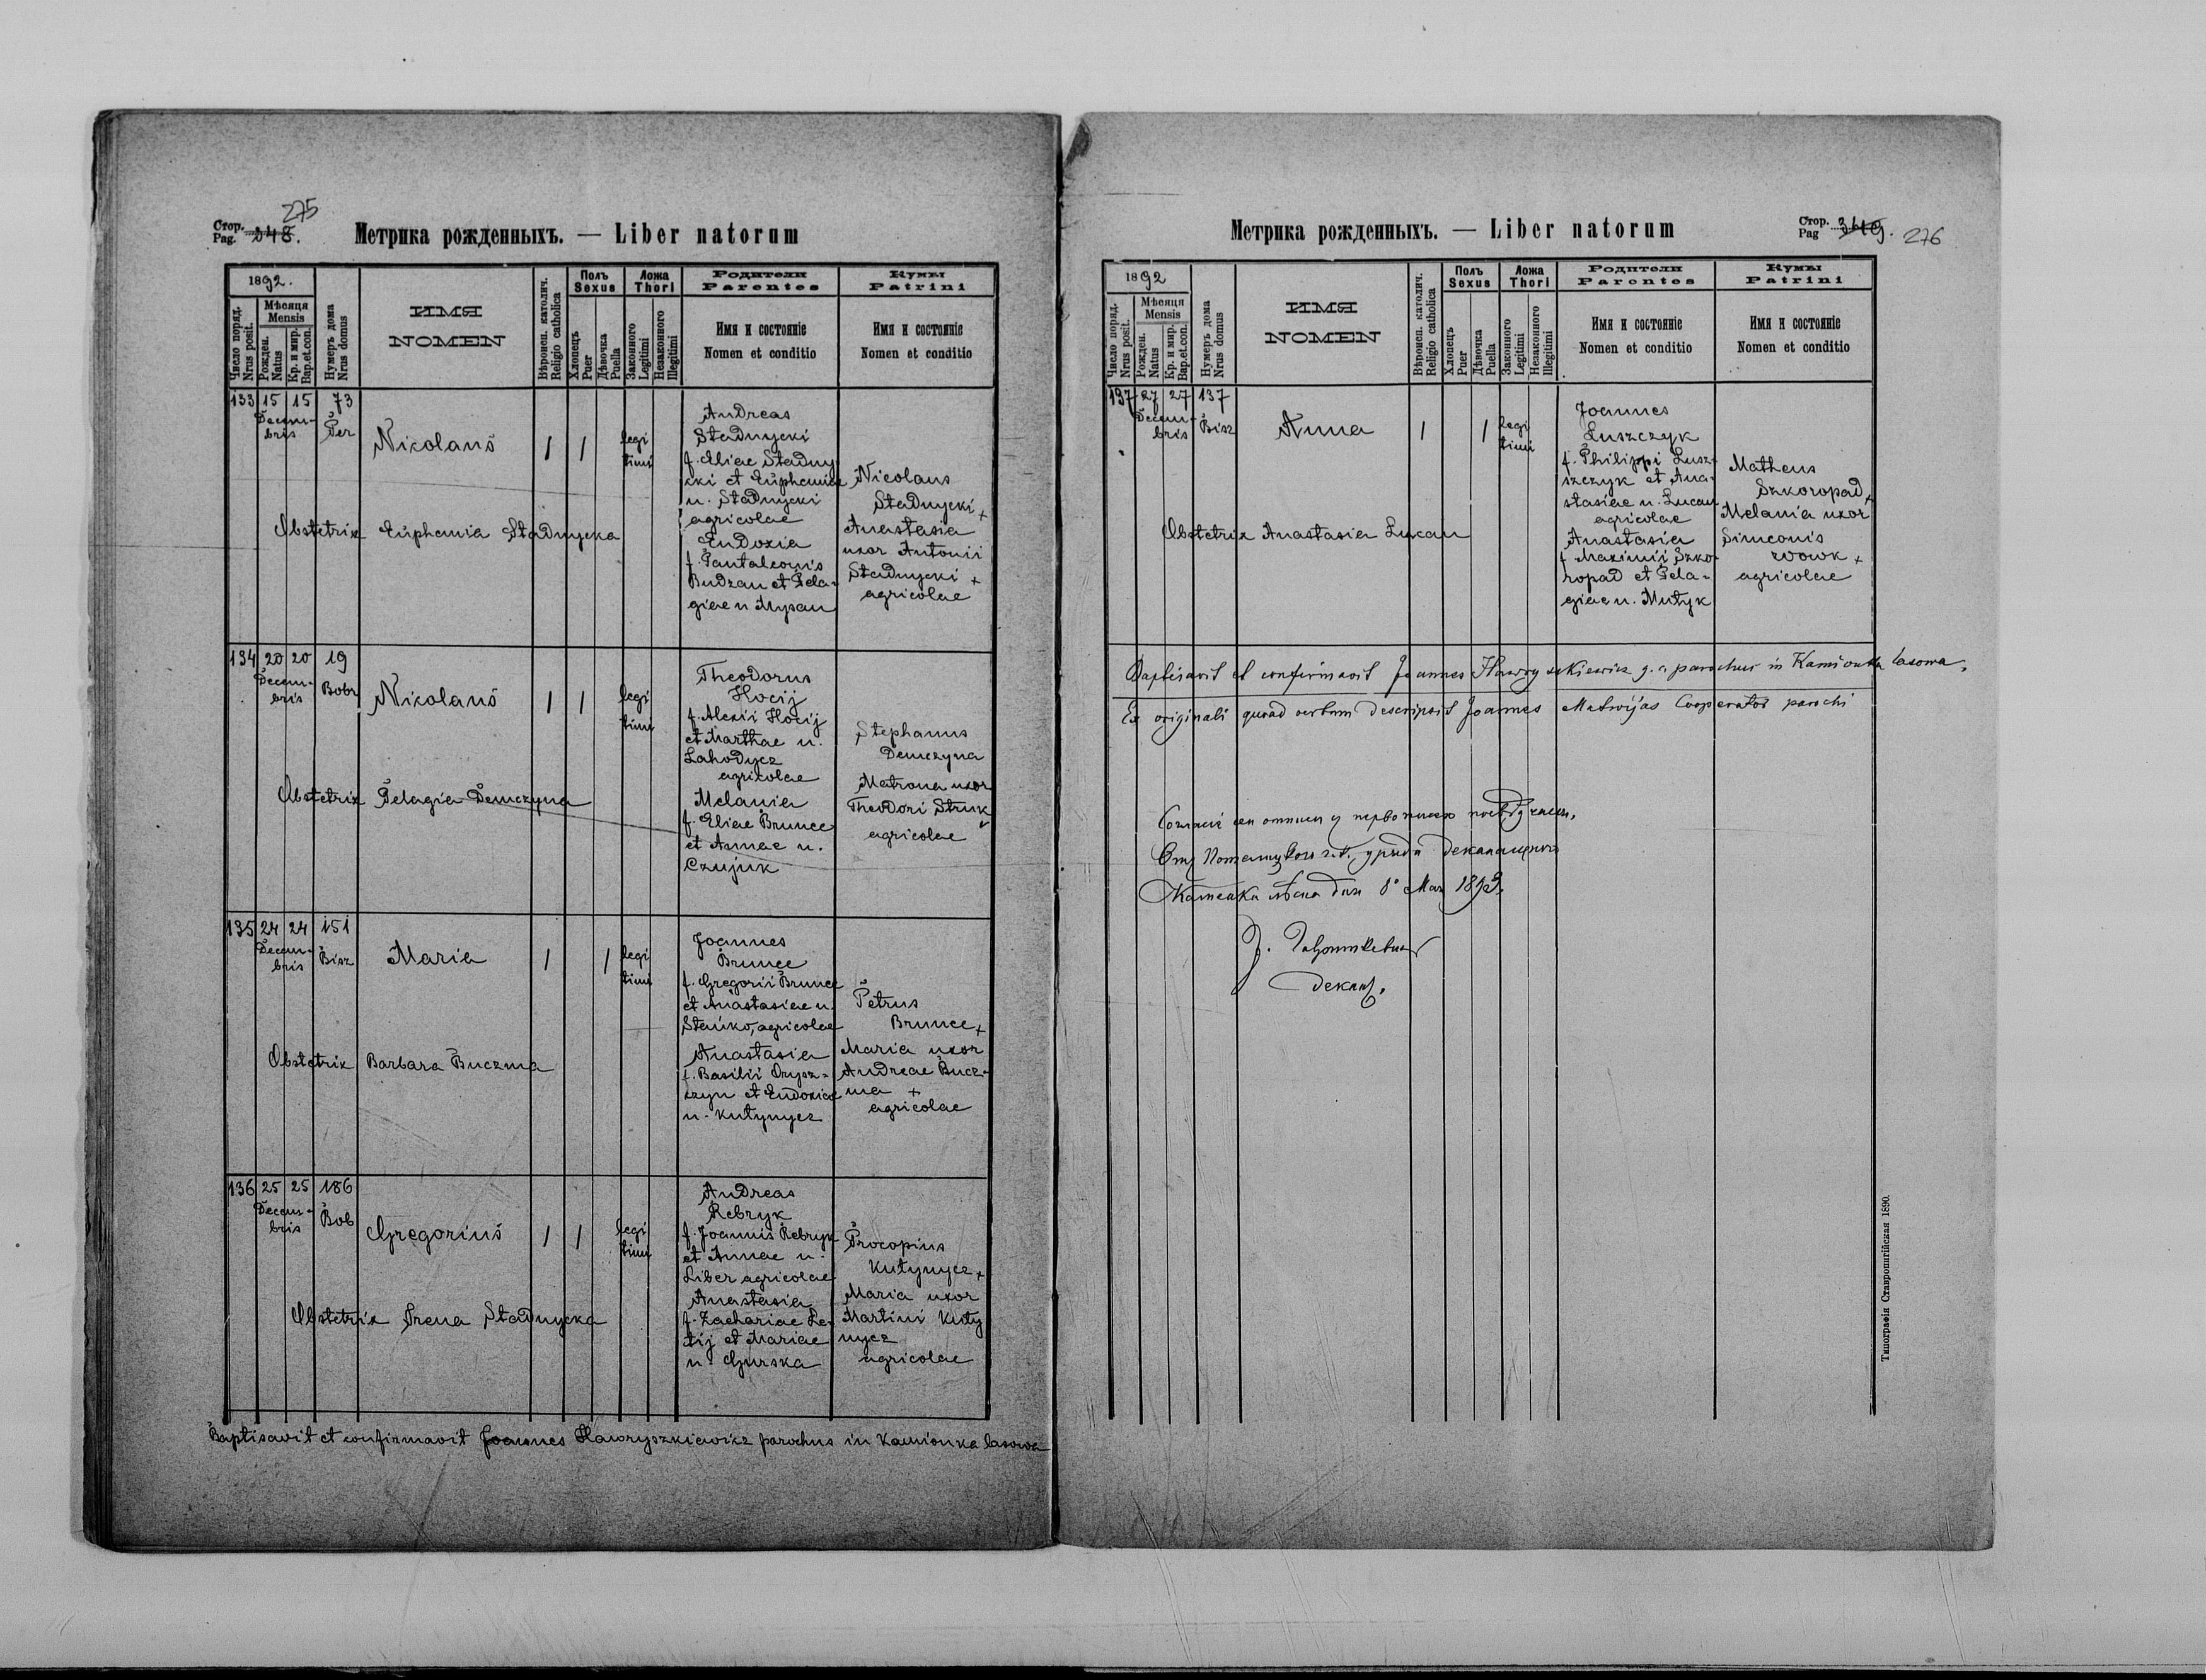 275
Стор. Pag. 248.
Метрика рожденныхъ. — Liber natorum
1892.
Число поряд. Nrus posit.
Мѣсяця Mensis
Рожден. Natus
Кр. и мир. Bap. et. con.
Нумеръ дома Nrus domus
ИМЯ
NOMEN
Вѣроисп. католич. Religio catholica
Полъ Sexus
Хлопецъ Puer
Дѣвочка Puella
Ложа Thori
Законного Legitimi
Незаконного Illegitimi
Родители
Parentes
Имя и состоянie
Nomen et conditio
Кумы
Patrini
Имя и состоянie
Nomen et conditio
133 15 15 73
Decem-
bris
Per
Nicolaus
1 1
legi
timi
Andreas
Stadnycki
f. Eliae Stadny
cki et Euphemiae
n. Stadnycki
agricolae
Eudoxia
f. Pantaleonis
Budzan et Pela-
giae n Mysan
Nicolaus
Stadnycki +
Anastasia
uxor Antonii
Stadnycki +
agricolae
Obstetrix Euphemia Stadnycka
134 20 20 19
Decem-
bris
Bobr
Nicolaus
1 1
legi
timi
Theodorus
Hocij
f. Alexii Hocij
et Marthae n.
Lahodycz
agricolae
Melania
f. Eliae Brunec
et Annae n.
Czujuk
Stephanus
Demczyna
Matrona uxor
Theodori Struk
agricolae
Obstetrix Pelagia Demczyna
135 24 24 151
Decem-
bris
Bisz
Maria
1 1
legi
timi
Joannes
Brunec
f. Gregorii Brunec
et Anastasiae n.
Stańko, agricolae
Anastasia
f. Basilii Orysz-
czyn et Eudoxiae
n. Kutynycz
Petrus
Brunec +
Maria uxor
Andreae Bucz-
ma +
agricolae
Obstetrix Barbara Buczma
136 25 25 186
Decem-
bris
Bob
Gregorius
1 1
legi
timi
Andreas
Rebryk
f. Joannis Rebryk
et Annae n.
Liber agricolae
Anastasia
f. Zachariae Le-
tij et Mariae
n. Gurska
Procopius
Kutynycz +
Maria uxor
Martini Kuty
nycz
agricolae
Obstetrix Irena Stadnycka
Baptisavit et confirmavit Joannes Hawryszkiewicz parochus in Kamionka lasowa
Метрика рожденныхъ. — Liber natorum
Стор. Pag
276
1892
Число поряд. Nrus posit.
Мѣсяця Mensis
Рожден. Natus
Кр. и мир. Bap. et. con.
Нумеръ дома Nrus domus
ИМЯ
NOMEN
Вѣроисп. католич. Religio catholica
Полъ Sexus
Хлопецъ Puer
Дѣвочка Puella
Ложа Thori
Законного Legitimi
Незаконного Illegitimi
Родители
Parentes
Имя и состоянie
Nomen et conditio
Кумы
Patrini
Имя и состоянie
Nomen et conditio
137 27 27 137
Decem-
bris
Bisz
Anna
1 1
legi
timi
Joannes
Luszczyk
f. Philippi Lusz-
szczyk et Ana-
stasiae n. Lucan
agricolae
Anastasia
f Maximii Szko-
ropad et Pela-
giae n. Mutyk
Matheus
Szkoropad +
Melania uxor
Simeonis
Wowk +
agricolae
Obstetrix Anastasia Lucan
Baptisavit et confirmavit Joannes Hawryszkiewicz g. c. parochus in Kamionka lasowa,
Ex originali quoad verbum descripsit Joannes Matwijas Cooperator parochi
Каменка дня Мая 1893.
деканъ.
Типографія Ставропигійская 1890.